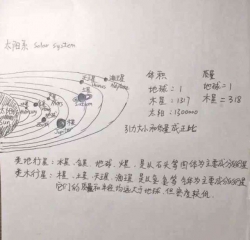 太阳系 Solar system
海王星
Neptune
土星
Saturn
木星
Jupiter
Sun
体积
地球 = 1
木星 = 1317
太阳 = 1300000
质量
地球 = 1
木星 = 318
引力大小和质量成正比
类地行星: 水星、金星、地球、火星、是以石头等固体为主要成分的行星
类木行星: 木星、土星、天王星、海王星、是以氢、氦等气体为主要成分的行星
它们的质量和半径均远大于地球, 但密度较低.